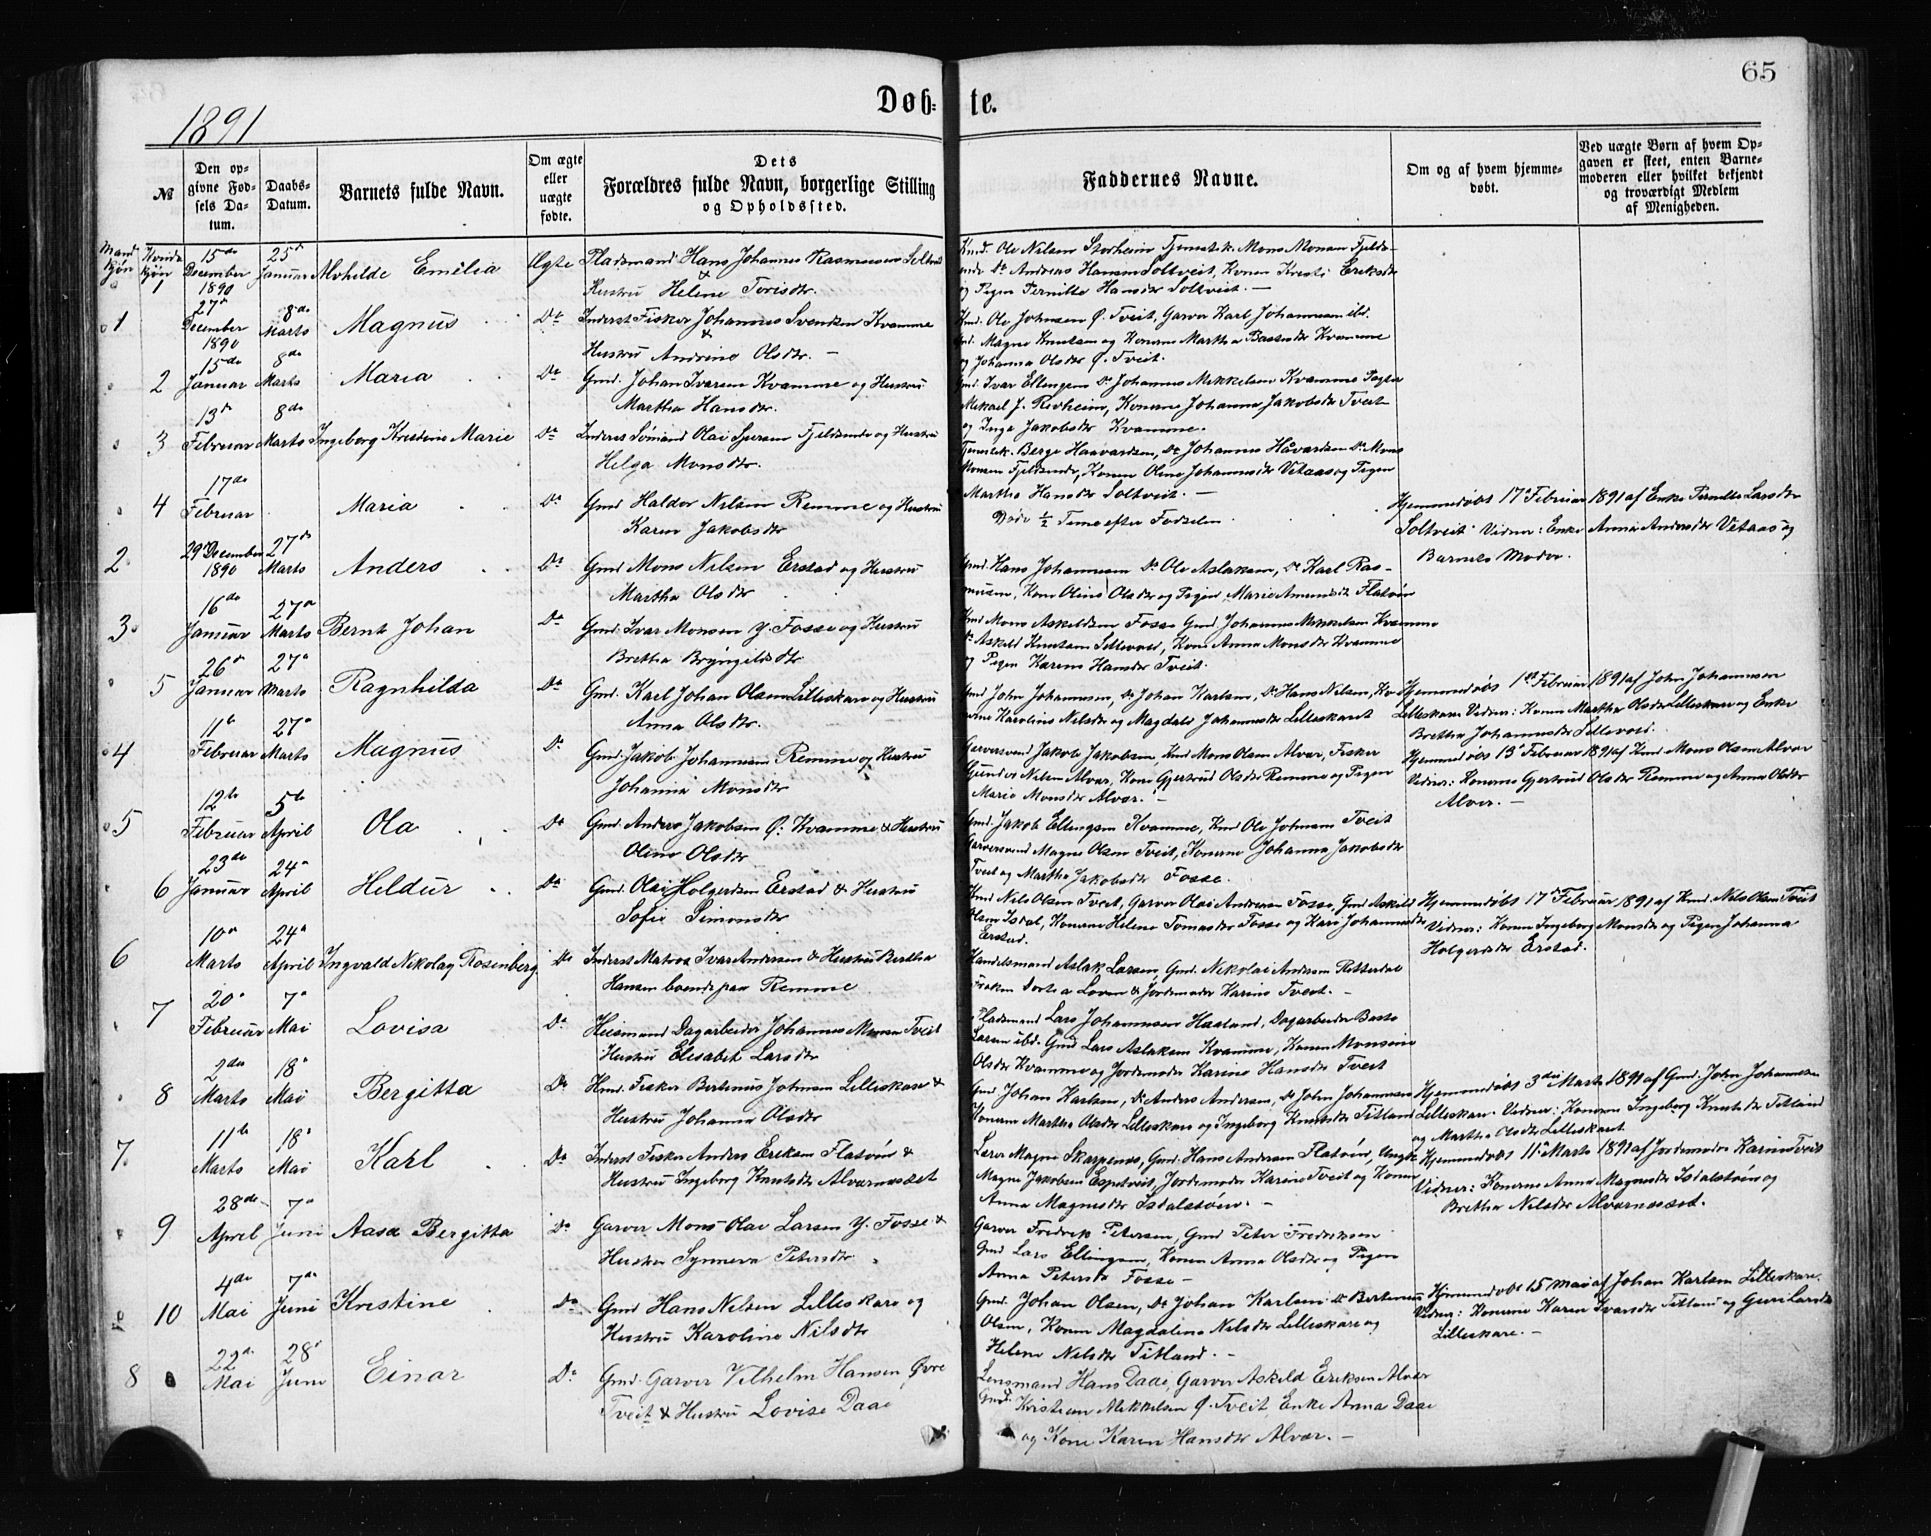 65
Døb- te.
1891
№
Den op-
givne Fød-
sels Da-
tum.
Daabs-
Datum.
Barnets fulde Navn.
Om ægte
eller
uægte
fødte.
Dets
Forældres fulde Navn, borgerlige Stilling
og Opholdssted.
Faddernes Navne.
Om og af hvem hjemme-
døbt.
Ved uægte Børn af hvem Op-
gaven er skeet, enten Barne-
moderen eller hvilket bekjendt
og troværdigt Medlem
af Menigheden.
Mand Kjøn Kvinde Kjøn
1 15de December 1890 25d Januar Alvhilde Emilia Ægte Pladsmand Hans Johannes Rasmussen
& Hustru Helene Torisdtr.
Kmd. Ole Nilsen Storheim Tjenestk. Mons Monsen Fjeld-
sende Do Andreas Hansen Soltveit, Konen Kristi Eriksdtr
og Pigen Pernille Hansdtr Soltveit. —
1 27d December 1890 8de Marts Magnus Do Inderst Fisker Johannes Svendsen Kvamme
& Hustru Andrine Olsdtr. —
Kmd. Ole Johnsen Ø. Tveit, Garver Karl Johannesen ibd.
Gmd. Magne Knutsen og Konerne Martha Bastesdtr Kvamme
og Johanna Olsdtr Ø. Tveit.
2 15de Januar 8de Marts Maria Do Gmd. Johan Ivarsen Kvamme og Hustru
Martha Hansdtr.
Gmd Ivar Ellingsen Do Johannes Mikkelsen Kvamme
Mikael J. Revheim, Konerne Johanna Jakobsdtr Tveit
og Inga Jakobsdtr Kvamme.
3 13d Februar 8de Marts Ingeborg Kristine Marie Do Inderst Sømand Olai Sjursen Fjeldsende og Hustru
Helga Monsdtr.
Tjenestk. Berge Haavardsen, Do Johannes Håvardsen Do Mons
Monsen Fjeldsende, Konen Oline Johannesdtr Vetaas og Pigen
Martha Hansdtr Soltveit. —
4 17de Februar Maria Do Gmd Haldor Nilsen Remme og Hustru
Karen Jakobsdtr
Døde ½ Time efter Fødselen
Hjemmedøbt 17d Februar 1891 af Enke Pernille Larsdtr
Soltveit Vidner: Enke Anna Andersdtr Vetaas og
Barnets Moder.
2 29d December 1890 27d Marts Anders Do Gmd Mons Nilsen Erstad og Hustru
Martha Olsdtr
Gmd. Hans Johannesen Do Ole Aslaksen, Do Karl Ras-
musen, Kone Oline Olsdtr og Pigen Marie Amundsdtr Flatøen
3 16de Januar 27d Marts Bernt Johan Do Gmd. Ivar Monsen Y. Fosse og Hustru
Bretha Brýngelsdtr
Gmd Mons Askildsen Fosse Gmd. Johannes Mikkelsen Kvamme
Do Askild Knutsen Sellevold, Kone Anna Monsdtr Kvamme
og Pigen Karen Hansdtr Tveit.
5 26d Januar 27d Marts Ragnhilda Do Gmd. Karl Johan Olsen Lilleskare og Hustru
Anna Olsdtr.
Gmd John Johannesen, Do Johan Karlsen, Do Hans Nilsen, Ko-
nerne Karoline Nilsdtr og Magdale Johannesdtr Lilleskaret
Hjemmedøbt 1ste Februar 1891 af John Johannesen
Lilleskare Vidner: Konen Martha Olsdtr Lilleskare og Enke
Bretha Johannesdtr Sellevold.
4 11te Februar 27d Marts Magnus Do Gmd. Jakob Johannesen Remme og Hustru
Johanna Monsdtr
Garversvend Jakob Jakobsen, Kmd Mons Olsen Alver, Fisker
Gunder Nilsen Alver, Kone Gjertrud Olsdtr Remme og Pigen
Marie Monsdtr Alver. —
Hjemmedøbt 13d Februar 1891 af Kmd Mons Olsen Alver
Vidner: Konerne Gjertrud Olsdtr Remme og Anna Olsdtr
Alver. —
5 12te Februar 5te April Ola Do Gmd. Anders Jakobsen Ø. Kvamme & Hustru
Oline Olsdtr
Gmd. Jakob Ellingsen Kvamme, Kmd Ole Johnsen Tveit
Garversvend Magne Olsen Tveit, Konerne Johanna Jakobsdtr
Tveit og Martha Jakobsdtr Fosse.
6 23de Januar 24d April Heldur Do Gmd. Olai Holgersen Erstad & Hustru
Sofie Simonsdtr
Kmd Nils Olsen Tveit, Garver Olai Andersen Fosse, Gmd Askild
Olsen Isdal, Konerne Helene Tomasdtr Fosse og Kari Johannesdtr
Erstad.
Hjemmedøbt 17d Februar 1891 af Kmd. Nils Olsen Tveit
Vidner: Konen Ingeborg Monsdtr og Pigen Johanna
Holgersdtr Erstad.
6 10d Marts 24d April Ingvald Nikolay Rosenberg Do Inderst Matros Ivar Andersen & Hustru Bertha
Hansen boende paa Remme
Handelsmand Aslak Larsen, Gmd. Nikolai Andersen Rotterdal
Frøken Dorthea Loven & Jordemoder Karine Tveit. —
7 20d Februar 7d Mai Lovisa Do Husmand Dagarbeider Johannes Monsen Tveit
Hustru Elisabet Larsdtr
Pladsmand Lars Johannesen Haaland, Dagarbeider Baste
Larsen ibd. Gmd Lars Aslaksen Kvamme, Konen Monsine
Olsdtr Kvamme og Jordemoder Karine Hansdtr Tveit
8 2den Marts 18d Mai Bergitta Do Kmd. Fisker Bertinus Johnsen Lilleskare &
Hustru Johanna Olsdtr
Gmd Johan Karlsen, Do Anders Andersen, Do John Johannesen
Konerne Martha Olsdtr Lilleskare og Ingeborg Knutsdtr Titland
Hjemmedøbt 3die Marts 1891 af Gmd. John Johannesen
Lilleskare. Vidner: Konerne Ingeborg Knutsdtr Titland
og Martha Olsdtr Lilleskaret
7 11te Marts 18d Mai Karl Do Inderst Fisker Anders Eriksen Flatøen &
Hustru Ingeborg Knutsdtr Alvernesset
Lærer Magne Skarpenes, Gmd. Hans Andersen Flatøen, Ungk.
Magne Jakobsen Espetveit, Jordemoder Karine Tveit og Konen
Anna Magnesdtr Isdalstøen. —
Hjemmedøbt 11te Marts 1891 af Jordemoder Karine Tveit
Vidner: Konerne Anna Magnesdtr Isdalstøen og
Bretha Nilsdtr Alvernesset.
9 28de April 7d Juni Aasa Bergitta Do Garver Mons Olai Larsen Y. Fosse &
Hustru Synneva Petersdtr
Garver Fredrik Petersen, Gmd Peter Fredriksen
Gmd Lars Ellingsen, Konen Anna Olsdtr og Pigen
Anna Petersdtr Fosse —
10 4de Mai 7de Juni Kristine Do Gmd Hans Nilsen Lilleskare og
Hustru Karoline Nilsdtr
Gmd. Johan Olsen, Do Johan Karlsen Do Bertinus
Olsen, Konen Magdalena Nilsdtr Lilleskare og
Helene Nilsdtr Titland. —
Hjemmedøbt 15 Mai af Johan Karlsen Lilleskare.
Vidner: Konerne Karen Ivarsdtr Titland og Guri Larsdtr
Lilleskare. —
8 22d Mai 28d Juni Einar Do Gmd. Garver Vilhelm Hansen Øvre
Tveit & Hustru Lovise Daae
Lensmand Hans Daae, Garver Askild Eriksen Alver
Gmd. Kristian Mikkelsen Ø. Tveit, Enke Anna Daae
og Kone Karen Hansdtr Alver. —